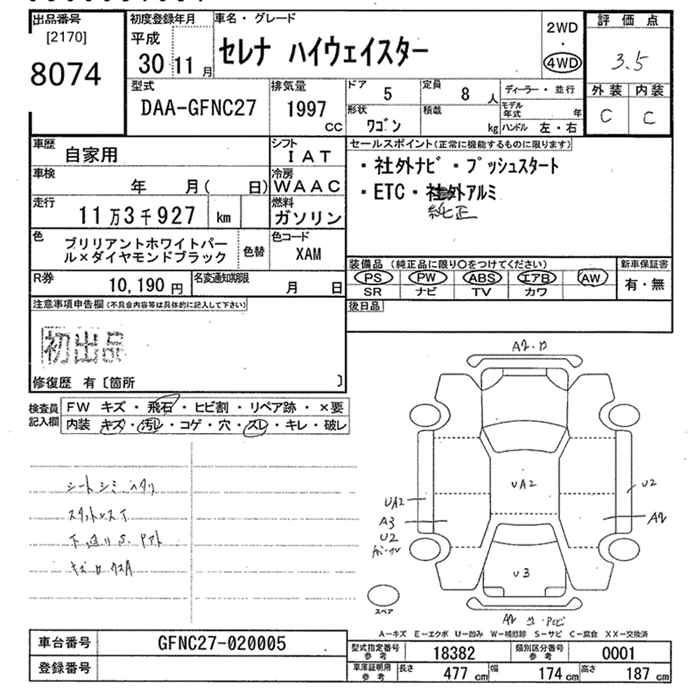 出品番号
[2170]
8074
初度登録年月
平成
30 11 月
車名・グレード
セレナ ハイウェイスター
2WD
・
4WD
評価点
3.5
外装 内装
C C
型式
DAA-GFNC27
排気量
1997 CC
ドア 5
定員 8 人
形状 ワゴン
積載 kg
ディーラー・並行
モデル年式 年
ハンドル 左・右
車歴 自家用
シフト IAT
車検 年 月( 日)
冷房 WAAC
走行 11万3千927 km
燃料 ガソリン
色 ブリリアントホワイトパール×ダイヤモンドブラック
色替
色コード XAM
R券 10,190円
名変通知期限 月 日
セールスポイント(正常に機能するものに限ります)
・社外ナビ・プッシュスタート
・ETC・社外アルミ
純正
装備品 (純正品に限り○をつけてください)
PS PW ABS エアB AW
SR ナビ TV カワ
新車保証書
有・無
後日品
注意事項申告欄(不具合内容等は具体的に記入して下さい)
初出品
修復歴 有〔箇所 〕
検査員記入欄
FW キズ・飛石・ヒビ割・リペア跡・×要
内装 キズ・汚レ・コゲ・穴・スレ・キレ・破レ
シートシミ ヘタリ
A2
UA2
A3
U2
UA2
U2
A2
U3
スペア
A=キズ E=エクボ U=凹み W=補修跡 S=サビ C=腐食 XX=交換済
車台番号 GFNC27-020005
登録番号
型式指定番号参考 18382
類別区分番号参考 0001
車庫証明用参考 長さ 477 cm 幅 174 cm 高さ 187 cm